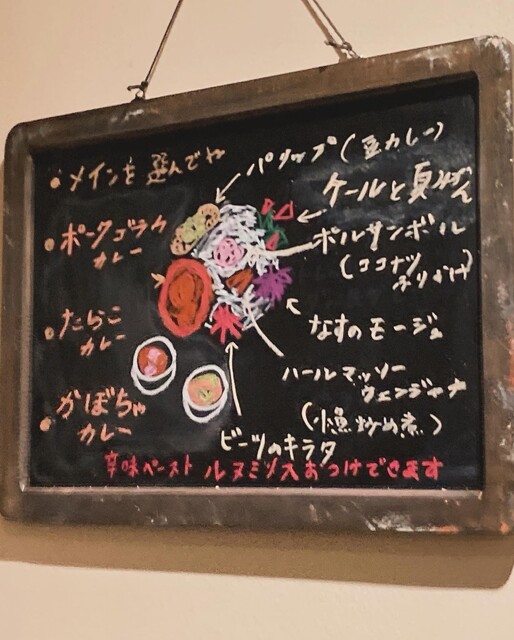 ・メインを選んでね
カレー
・たらこ
カレー
・かぼちゃ
カレー
パリップ(豆カレー)
ケールと夏みかん
ポルサンボル
(ココナツ
ふりかけ)
なすのモージュ
ハールマッソー
ウェンジャナ
(小魚炒め煮)
ビーツのキラタ
辛味ペースト ルヌミリスおつけできます